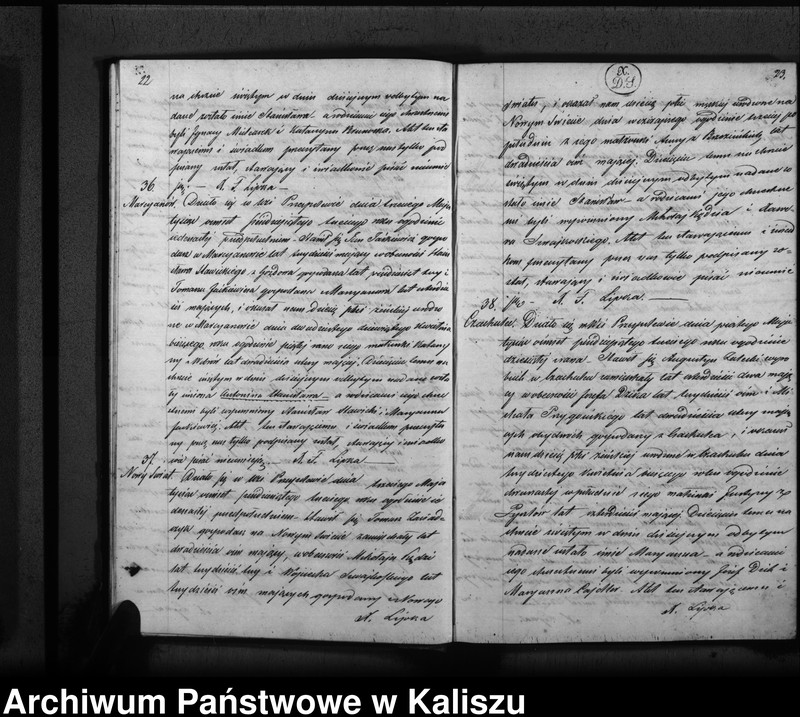 22
na chrzcie świętym w dniu dzisiejszym odbytym na
dane zostało imie Stanisław a rodzicami jego chrzestnemi
byli Ignacy Mularek i Katarzyna Akt ten sta
wającemu i świadkom przeczytany przez nas tylko pod
pisany został, stawający i świadkowie pisać nieumie
ją — X. F. Lipska —
36.
Maryanów. Działo się w wsi Przespolewie dnia trzeciego Maja
tysiąc ośmset pięćdziesiątego trzeciego roku o godzinie
jedenastej przedpołudniem. Stawił się Jan Jaśkiewicz gospo
darz w Maryanowie lat trzydzieści mający w obecności Stani
sława Sławickiego z gospodarza lat trzydzieści trzy i
Tomasza Jaśkiewicza gospodarza z Maryanowa lat czterdzie
ści mających, i okazał nam dziecię płci żeńskiej urodzo
ne w Maryanowie dnia dwudziestego dziewiątego kwietnia
bieżącego roku o godzinie piątej rano z jego małżonki Katarzy
ny lat dwadzieścia cztery mającej. Dziecięciu temu na
chrzcie świętym w dniu dzisiejszym odbytym nadane zosta
ły imiona Antonina Stanisława — a rodzicami jego chrze
stnemi byli wspomniony Stanisław Sławicki i Maryanna
Jaśkiewicz. Akt ten stawającemu i świadkom przeczyta
ny przez nas tylko podpisany został, stawający i świadko
wie pisać nieumieją — X. F. Lipska —
37.
Nowy Świat. Działo się w wsi Przespolewie dnia trzeciego Maja
tysiąc ośmset pięćdziesiątego trzeciego roku o godzinie je
denastej przedpołudniem. Stawił się Tomasz
gospodarz na Nowym Świecie zamieszkały lat
dwadzieścia ośm mający, w obecności Mikołaja Kędzi
lat trzydzieści trzy i Wojciecha lat
trzydzieści ośm mających gospodarzy z Nowego
X. Lipska
X.
D.S.
23.
Świata, i okazał nam dziecię płci męzkiej urodzone na
Nowym Świecie dnia wczorajszego o godzinie trzeciej po
południu z jego małżonki Anny z lat
dwadzieścia ośm mającej. Dziecięciu temu na chrzcie
świętym w dniu dzisiejszym odbytym nadane zo
stało imie Stanisław a rodzicami jego chrzestne
mi byli wspomniony Mikołaj Kędzia i
Akt ten stawającemu i świad
kom przeczytany przez nas tylko podpisany zo
stał, stawający i świadkowie pisać nieumie
ją — X. F. Lipska. —
38.
Czachulec. Działo się w wsi Przespolewie dnia piątego Maja
tysiąc ośmset pięćdziesiątego trzeciego roku o godzinie
dziesiątej z rana. Stawił się Augustyn wyro
bnik w Czachulcu zamieszkały lat czterdzieści dwa mają
cy w obecności Józefa Dzika lat trzydzieści ośm i Mi
chała Przygońskiego lat dwadzieścia cztery mają
cych obydwóch gospodarzy z Czachulca, i okazał
nam dziecię płci żeńskiej urodzone w Czachulcu dnia
trzydziestego kwietnia bieżącego roku o godzinie
dwunastej w południe z jego małżonki Justyny z
lat czterdzieści mającej. Dziecięciu temu na
chrzcie świętym w dniu dzisiejszym odbytym
nadane zostało imie Maryanna — a rodzicami
jego chrzestnemi byli wspomniony Józef Dzik i
Maryanna Akt ten stawającemu i
X. Lipska
Archiwum Państwowe w Kaliszu